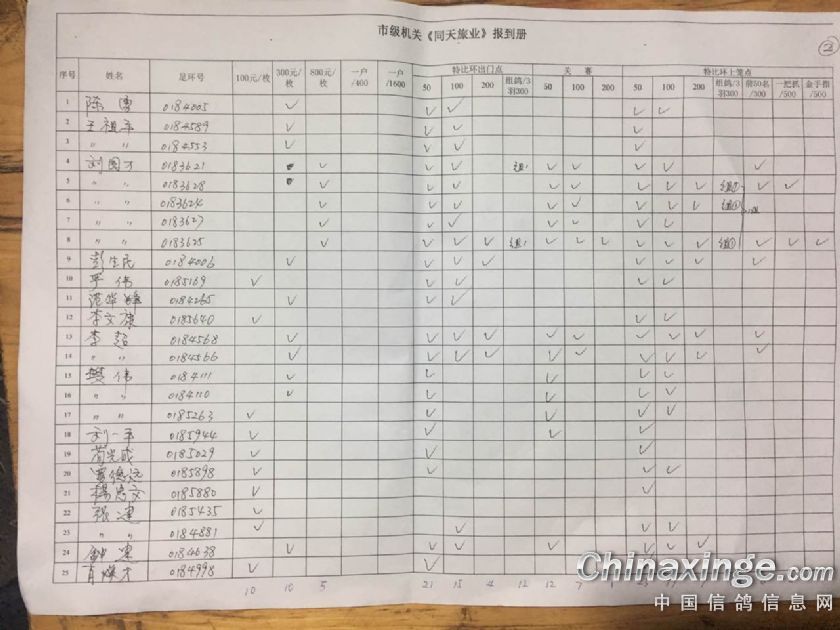 市级机关《同天旅业》报到册
②
序号 姓名 足环号 100元/枚 300元/枚 800元/枚 一户/400 一户/1600 特比环出门点 关赛 特比环上笼点
50 100 200 组鸽/3羽300 50 100 200 50 100 200 组鸽/3羽300 前50名/300 一把抓/500 金手指/500
1 陈勇 0184005 ✓ ✓ ✓ ✓ ✓
2 王祖平 0184589 ✓ ✓ ✓ ✓
3 〃 〃 0184553 ✓ ✓ ✓ ✓
4 刘国才 0183621 ✓ ✓ ✓ 组 ✓ ✓ ✓ ✓ ✓
5 〃 〃 0183628 ✓ ✓ ✓ ✓ ✓ ✓ ✓ ✓ 组 ✓ ✓
6 〃 〃 0183624 ✓ ✓ ✓ ✓ ✓ ✓ ✓ ✓ 组
7 〃 〃 0183627 ✓ ✓ ✓ ✓ ✓ ✓ ✓
8 〃 〃 0183625 ✓ ✓ ✓ ✓ 组 ✓ ✓ ✓ ✓ ✓ ✓ 组 ✓ ✓ ✓
9 彭生民 0184006 ✓ ✓ ✓ ✓ ✓ ✓ ✓
10 严伟 0185169 ✓ ✓ ✓ ✓ ✓
11 0184265 ✓ ✓ ✓
12 李文 0185640 ✓ ✓ ✓
13 李超 0184568 ✓ ✓ ✓ ✓ ✓ ✓ ✓ ✓ ✓ ✓
14 〃 〃 0184566 ✓ ✓ ✓ ✓ ✓ ✓ ✓ ✓ ✓ ✓
15 樊伟 0184111 ✓ ✓ ✓ ✓ ✓
16 〃 〃 0184110 ✓ ✓ ✓ ✓ ✓
17 〃 〃 0185263 ✓ ✓ ✓ ✓ ✓
18 刘一平 0185944 ✓ ✓ ✓ ✓
19 0185029 ✓ ✓ ✓
20 0185898 ✓ ✓ ✓ ✓
21 杨忠文 0185880 ✓ ✓
22 张建 0185435 ✓
23 〃 0184881 ✓ ✓ ✓ ✓
24 钟 0184638 ✓ ✓ ✓ ✓ ✓ ✓ ✓ ✓
25 肖 才 0184998 ✓ ✓
10 10 5 21 15 4 12 12 7
Chinaxinge.com
中国信鸽信息网